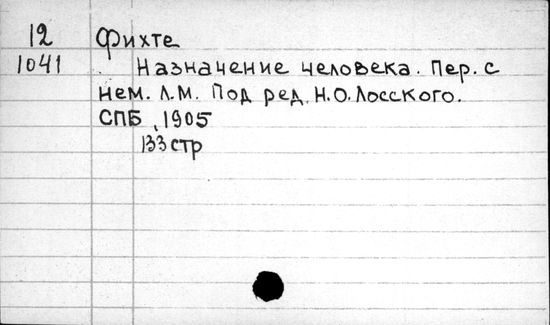 12 Фихте
1041 Назначение человека. Пер. с
нем. Л.М. Под ред. Н.О.Лосского.
СПБ, 1905
133 стр